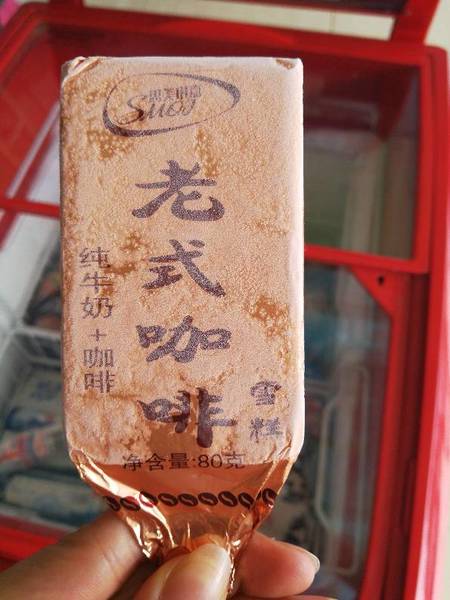 老式咖啡
雪糕
纯牛奶+咖啡
净含量:80克